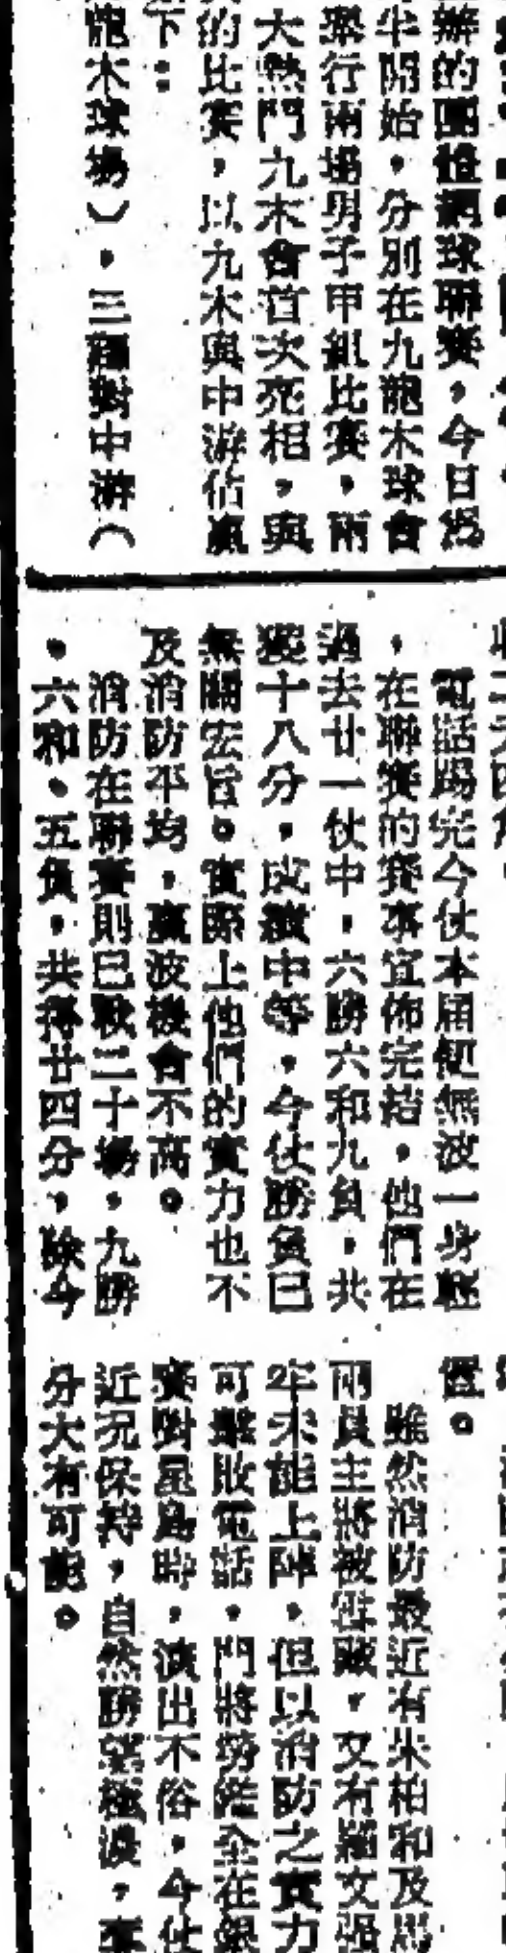 辦的團體網球聯賽，今日
半開始，分別在九龍木球會
舉行兩場男子甲組比賽，兩
大熱門九木會首次亮相，與
的比賽，以九木與中游佔
下：
龍木球場），三聯對中游（
電話踢完今仗本屆便無波一身輕
，在聯賽的賽事宣佈完結，他們在
過去廿一仗中，六勝六和九負，共
獲十八分，成績中等，今仗勝負已
無關宏旨。實際上他們的實力也不
及消防平均，贏波機會不高。
消防在聯賽則已戰二十場，九勝
，六和，五負，共得廿四分，除今
置。
雖然消防最近有朱柏和及馬
兩員主將被
又有羅文強
年未能上陣，但以消防之實力
可擊敗電話，門將
全在銀
賽對星島時，演出不俗，今仗
近況保持，自然勝望極濃，奪
分大有可能。